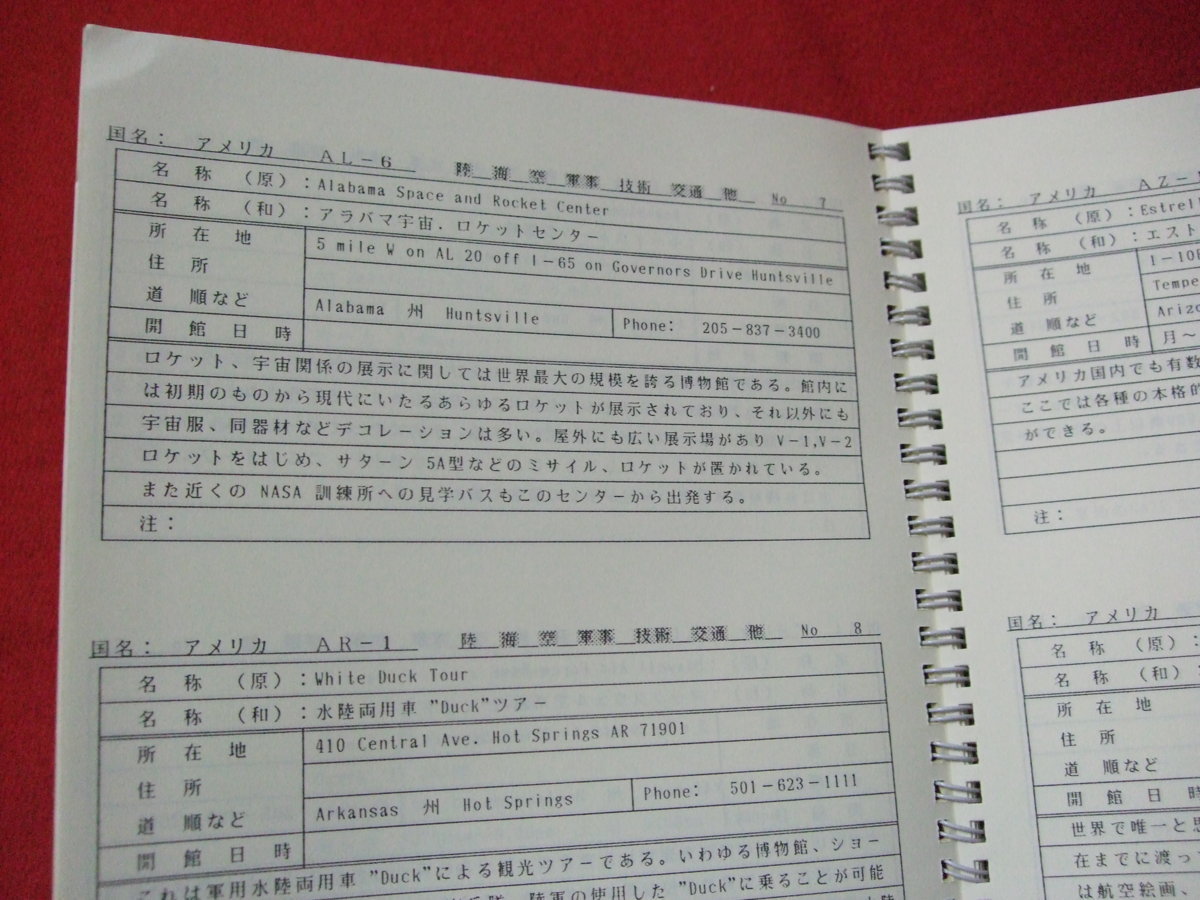 国名： アメリカ AL－6 陸 海 空 軍事 技術 交通 他 No 7
名 称 （原）：Alabama Space and Rocket Center
名 称 （和）：アラバマ宇宙．ロケットセンター
所 在 地 5 mile W on AL 20 off I－65 on Governors Drive Huntsville
住 所
道 順など Alabama 州 Huntsville Phone： 205－837－3400
開 館 日 時
ロケット、宇宙関係の展示に関しては世界最大の規模を誇る博物館である。館内に
は初期のものから現代にいたるあらゆるロケットが展示されており、それ以外にも
宇宙服、同器材などデコレーションは多い。屋外にも広い展示場があり V－1,V－2
ロケットをはじめ、サターン 5A型などのミサイル、ロケットが置かれている。
また近くの NASA 訓練所への見学バスもこのセンターから出発する。
注：
国名： アメリカ AR－1 陸 海 空 軍事 技術 交通 他 No 8
名 称 （原）：White Duck Tour
名 称 （和）：水陸両用車 ”Duck”ツアー
所 在 地 410 Central Ave. Hot Springs AR 71901
住 所
道 順など Arkansas 州 Hot Springs Phone： 501－623－1111
開 館 日 時
これは軍用水陸両用車 ”Duck”による観光ツアーである。いわゆる博物館、ショー
陸軍の使用した ”Duck”に乗ることが可能
国名： アメリカ AZ－
名 称 （原）：Estrell
名 称 （和）：エスト
所 在 地 I－10
住 所 Tempe
道 順など Arizo
開 館 日 時 月～
アメリカ国内でも有数
ここでは各種の本格的
ができる。
注：
国名： アメリカ
名 称 （原）：
名 称 （和）：
所 在 地
住 所
道 順など
開 館 日 時
世界で唯一と
在までに渡っ
は航空絵画、